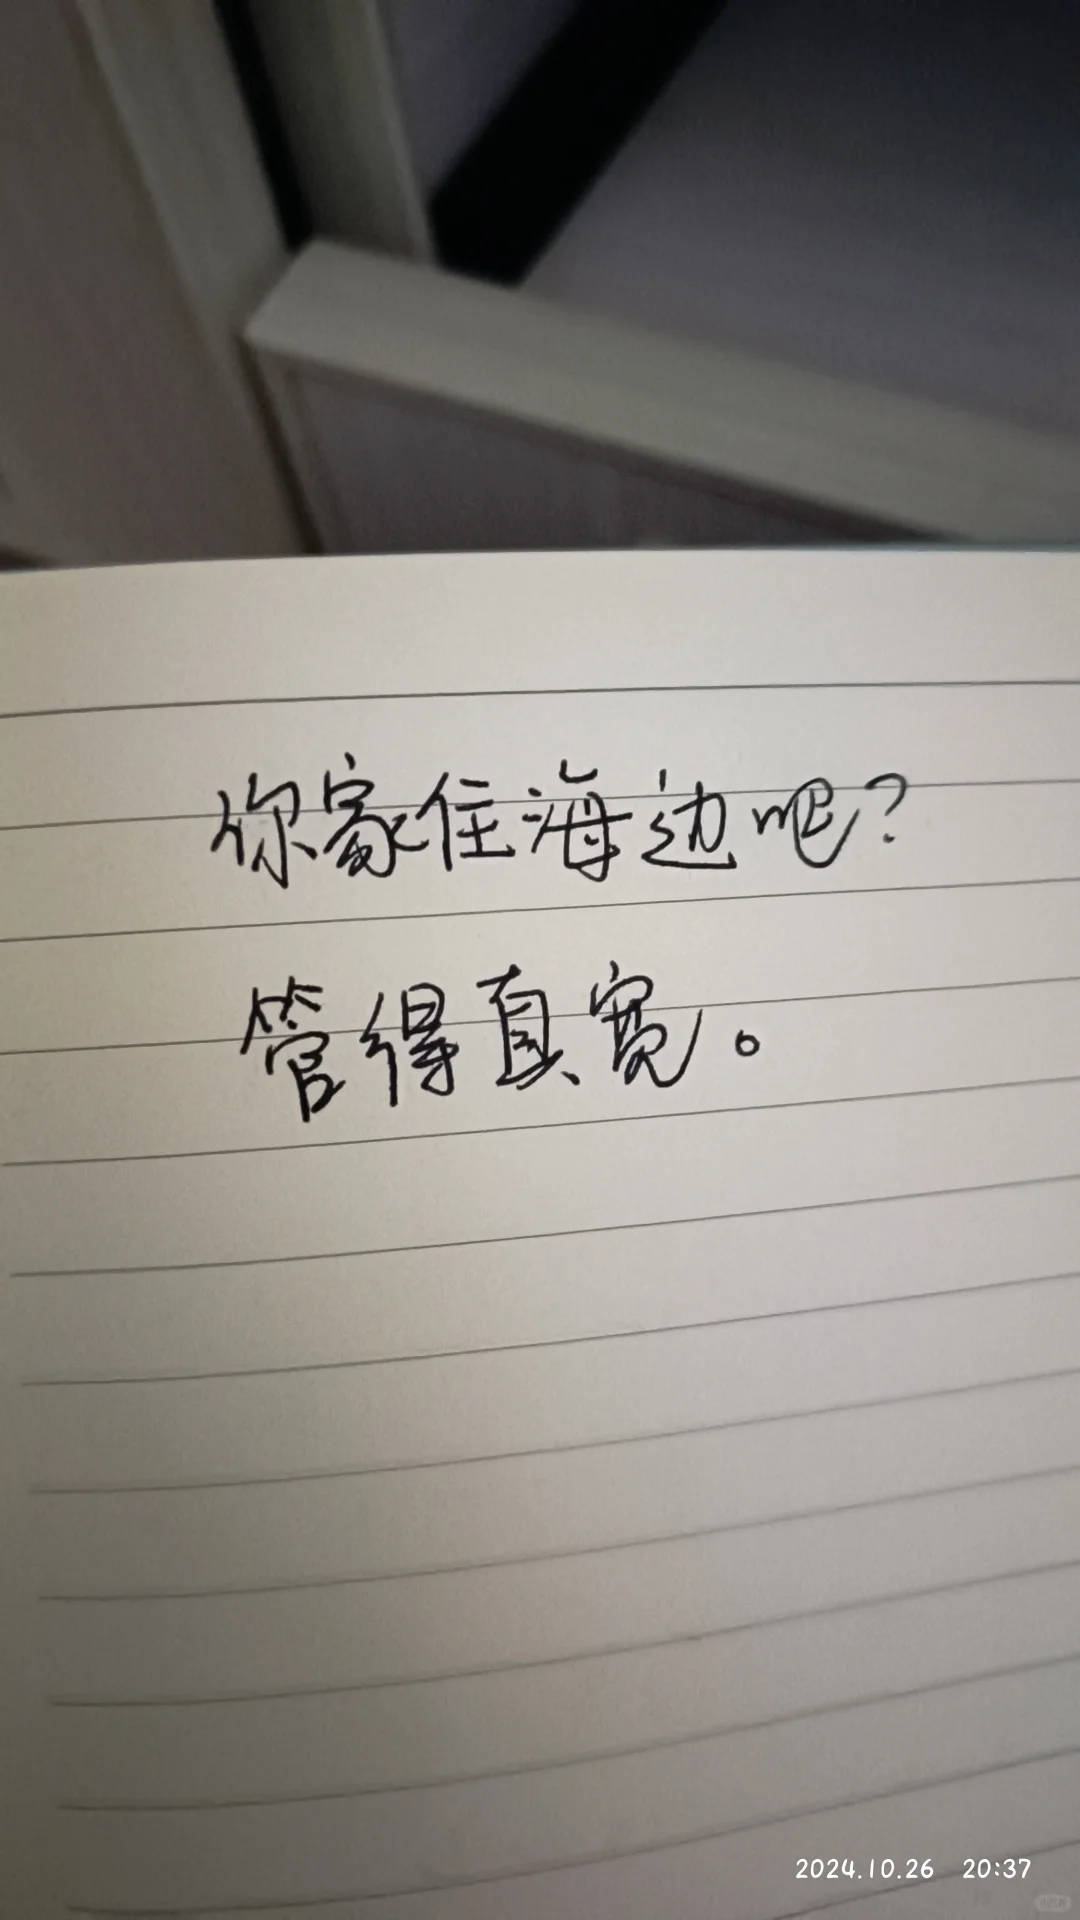 你家住海边吧?
管得真宽。
2024.10.26 20:37